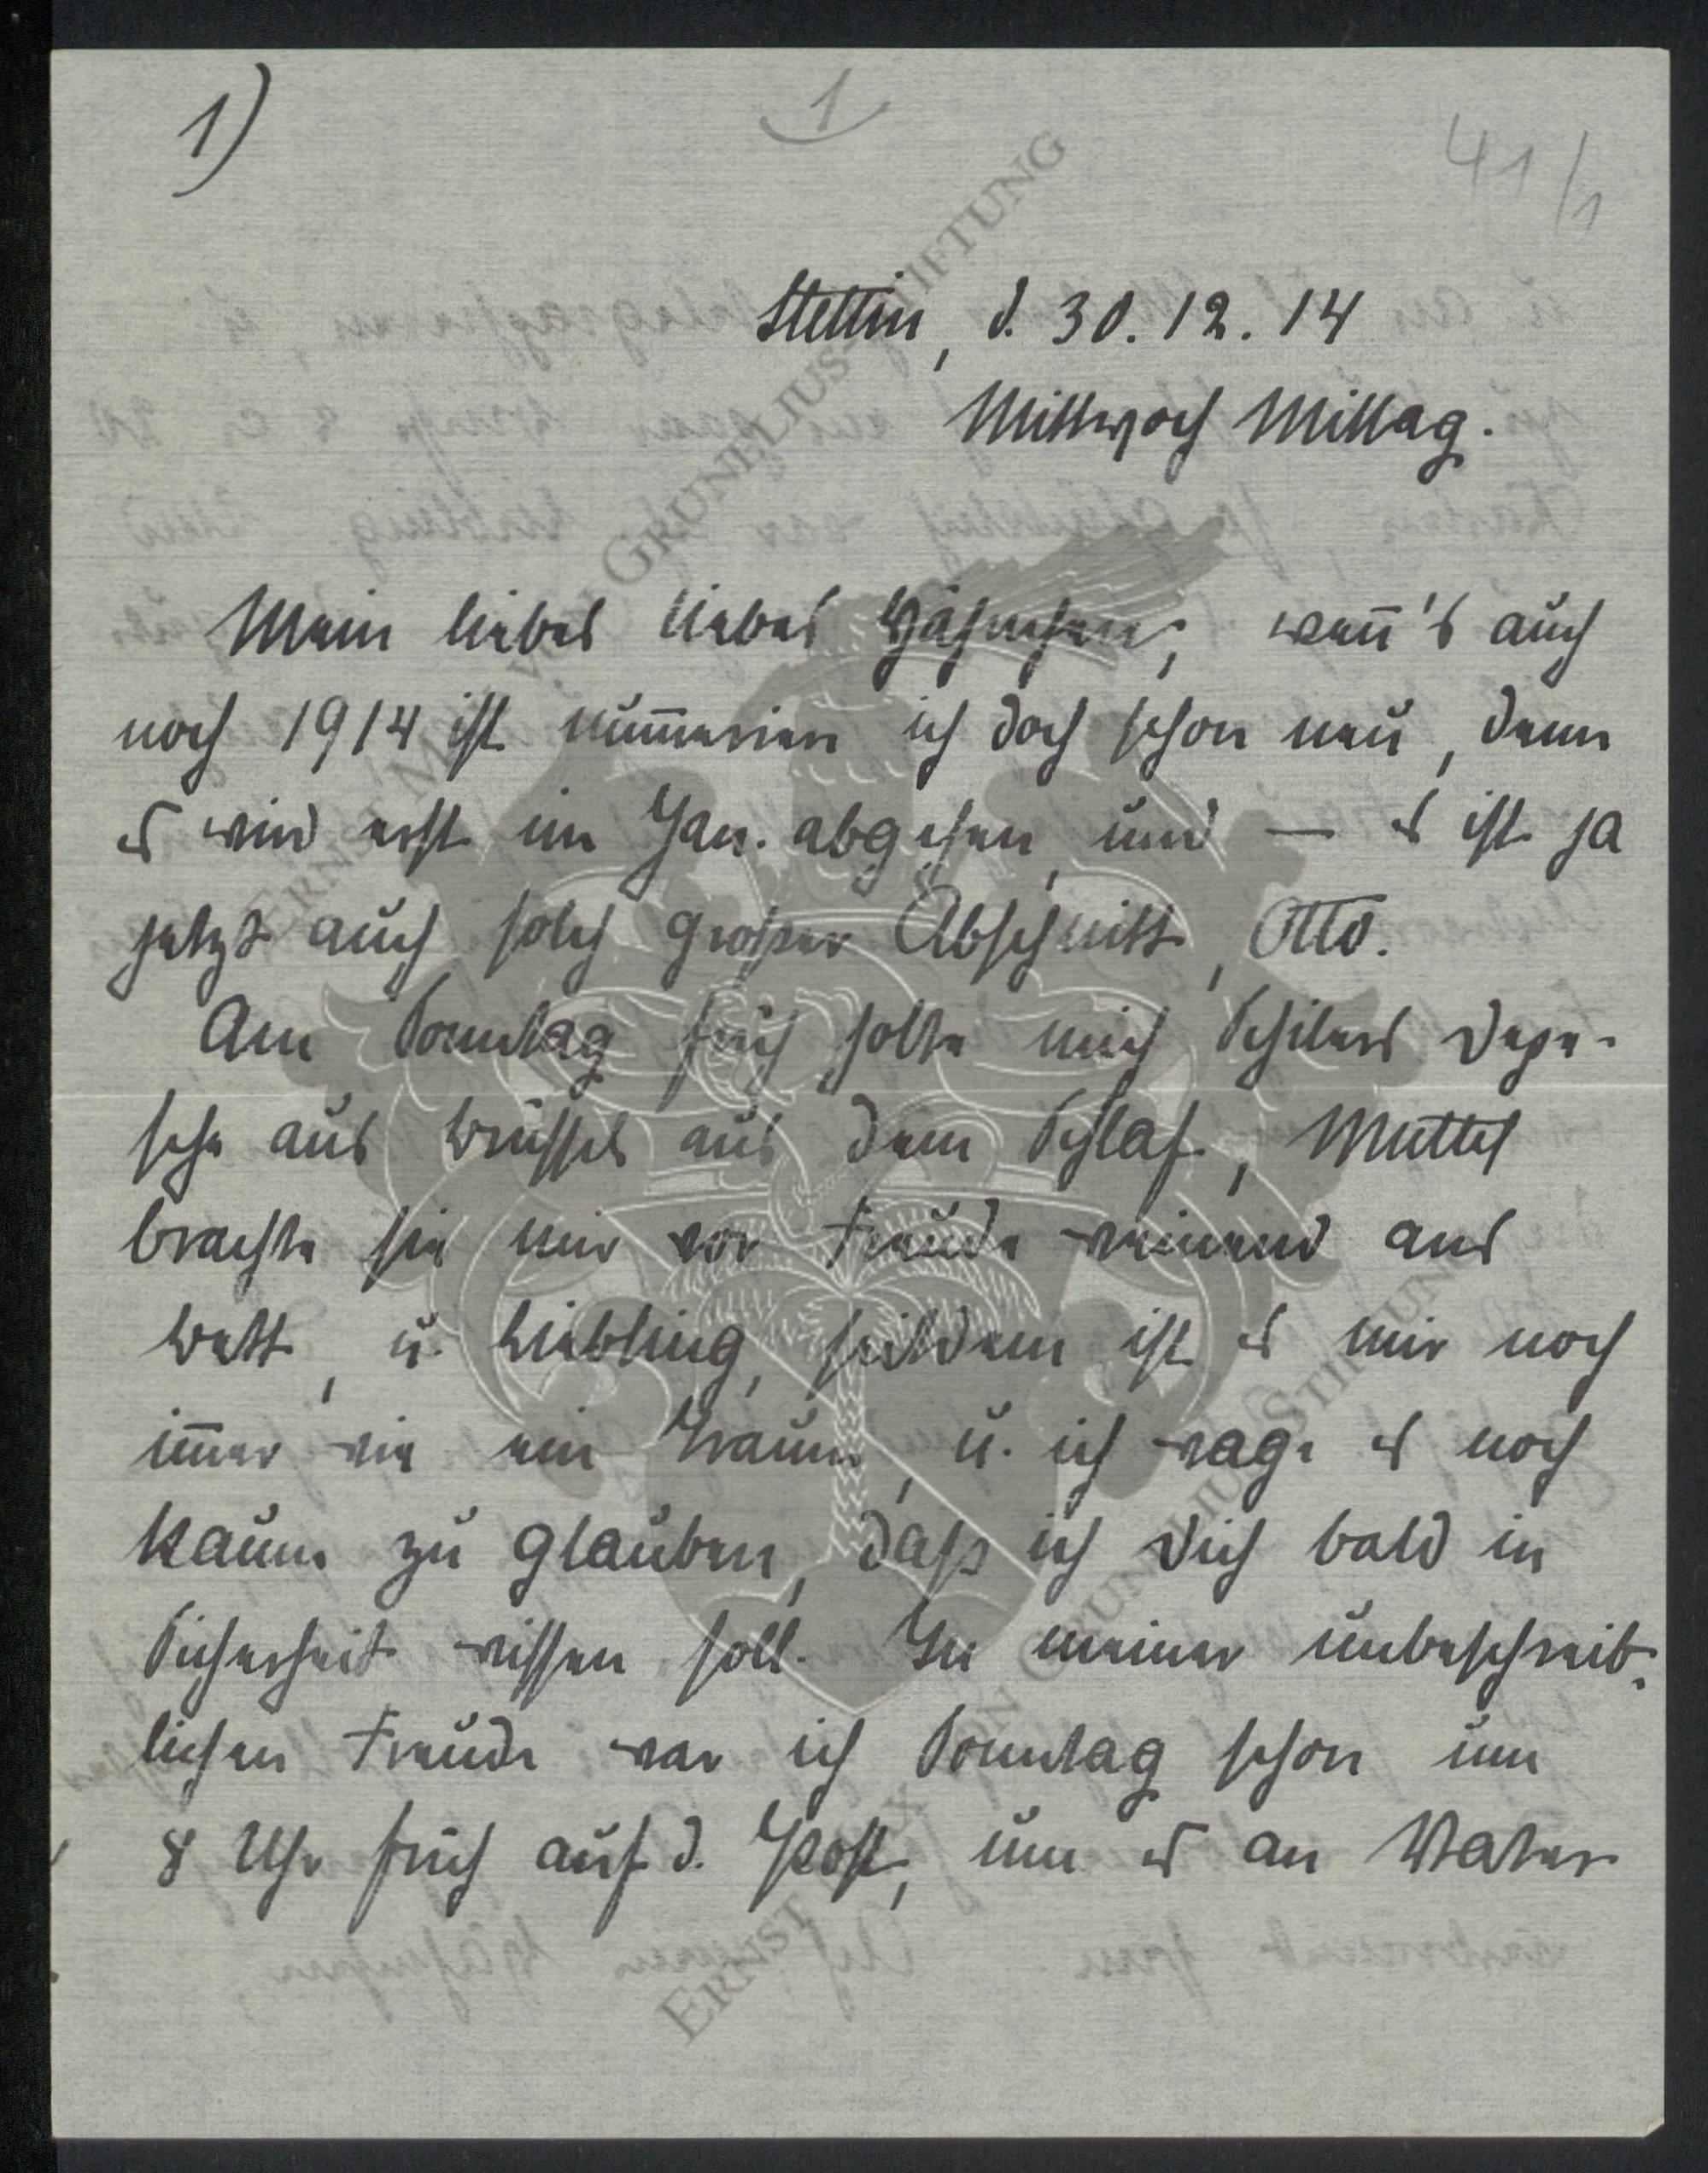 1)
1
41/1
Stettin, d. 30. 12. 14
Mittwoch Mittag.
Mein liebes liebes Häschen, wenn's auch
noch 1914 ist nummerier ich doch schon neu, denn
es wird erst im Jan. abgehen, und — es ist ja
jetzt auch solch grosser Abschnitt, Otto.
Am Sonntag früh holte mich Depe-
sche aus Brüssel aus dem Schlaf, Muttel
brachte sie mir vor Freude weinend ans
Bett, u. Liebling, seitdem ist es mir noch
immer wie ein Traum, u. ich wage es noch
kaum zu glauben, dass ich Dich bald in
Sicherheit wissen soll. In meiner unbeschreib-
lichen Freude war ich Sonntag schon um
8 Uhr früh auf d. Post, um es an Vater
ERNST MAX VON GRUNELIUS-STIFTUNG
ERNST MAX VON GRUNELIUS-STIFTUNG